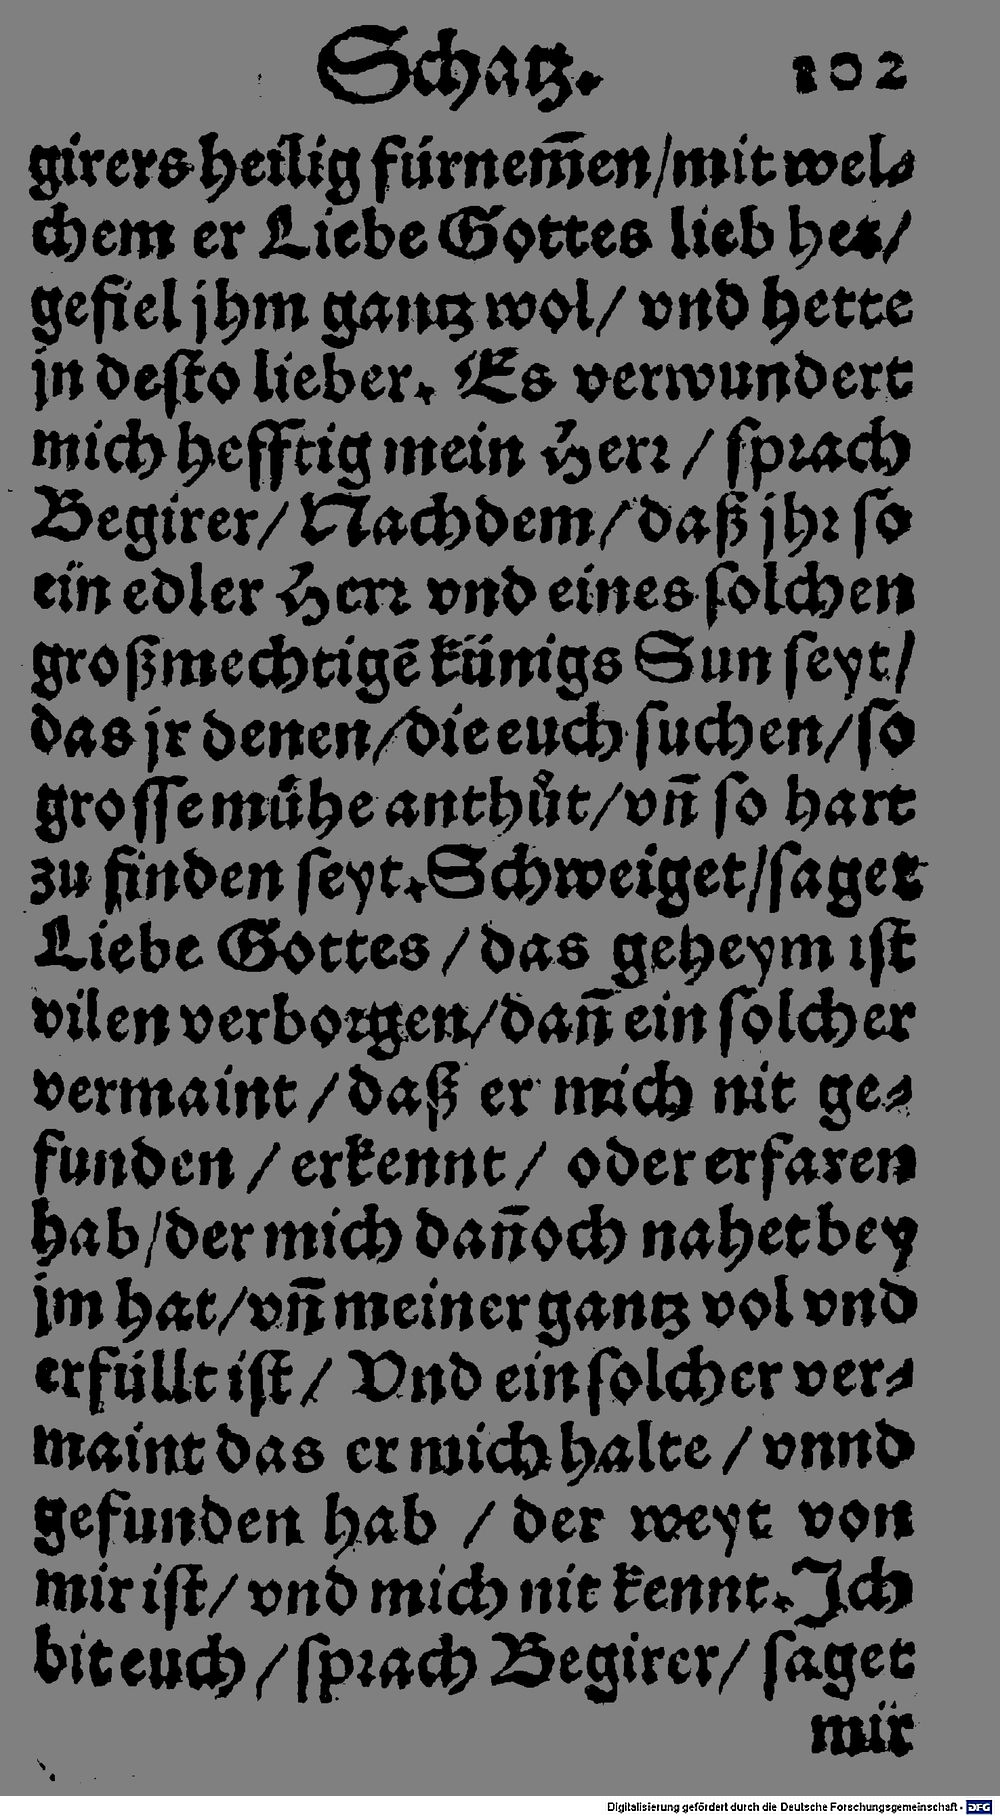 Schatz. 102
girers heilig fürnem̄en/mit wel⸗
chem er Liebe Gottes lieb het/
gefiel jhm gantz wol/ vnd hette
jn deſto lieber. Es verwundert
mich hefftig mein Herꝛ / ſpꝛach
Begirer/ Nachdem/ daß jhꝛ ſo
ein edler Herꝛ vnd eines ſolchen
großmechtigē künigs Sun ſeyt/
das jr denen/die euch ſuchen/ſo
groſſe mühe anthůt/vn̄ ſo hart
zu finden ſeyt. Schweiget/ſaget
Liebe Gottes / das geheym iſt
vilen verboꝛgen/dan̄ ein ſolcher
vermaint / daß er mich nit ge⸗
funden / erkennt / oder erfaren
hab/der mich dan̄och nahet bey
jm hat/vn̄ meiner gantz vol vnd
erfüllt iſt / Vnd ein ſolcher ver⸗
maint das er mich halte / vnnd
gefunden hab / der weyt von
mir iſt/ vnd mich nit kennt. Ich
bit euch / ſpꝛach Begirer/ ſaget
mir
Digitalisierung gefördert durch die Deutsche Forschungsgemeinschaft - DFG